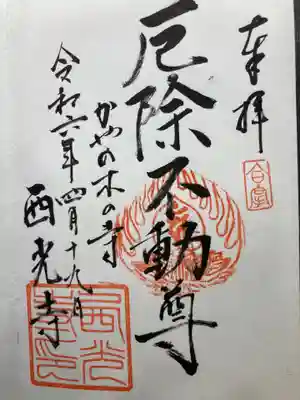 奉拝
厄除不動尊
かやの木の寺
令和六年四月十九日
西光寺
西光寺印